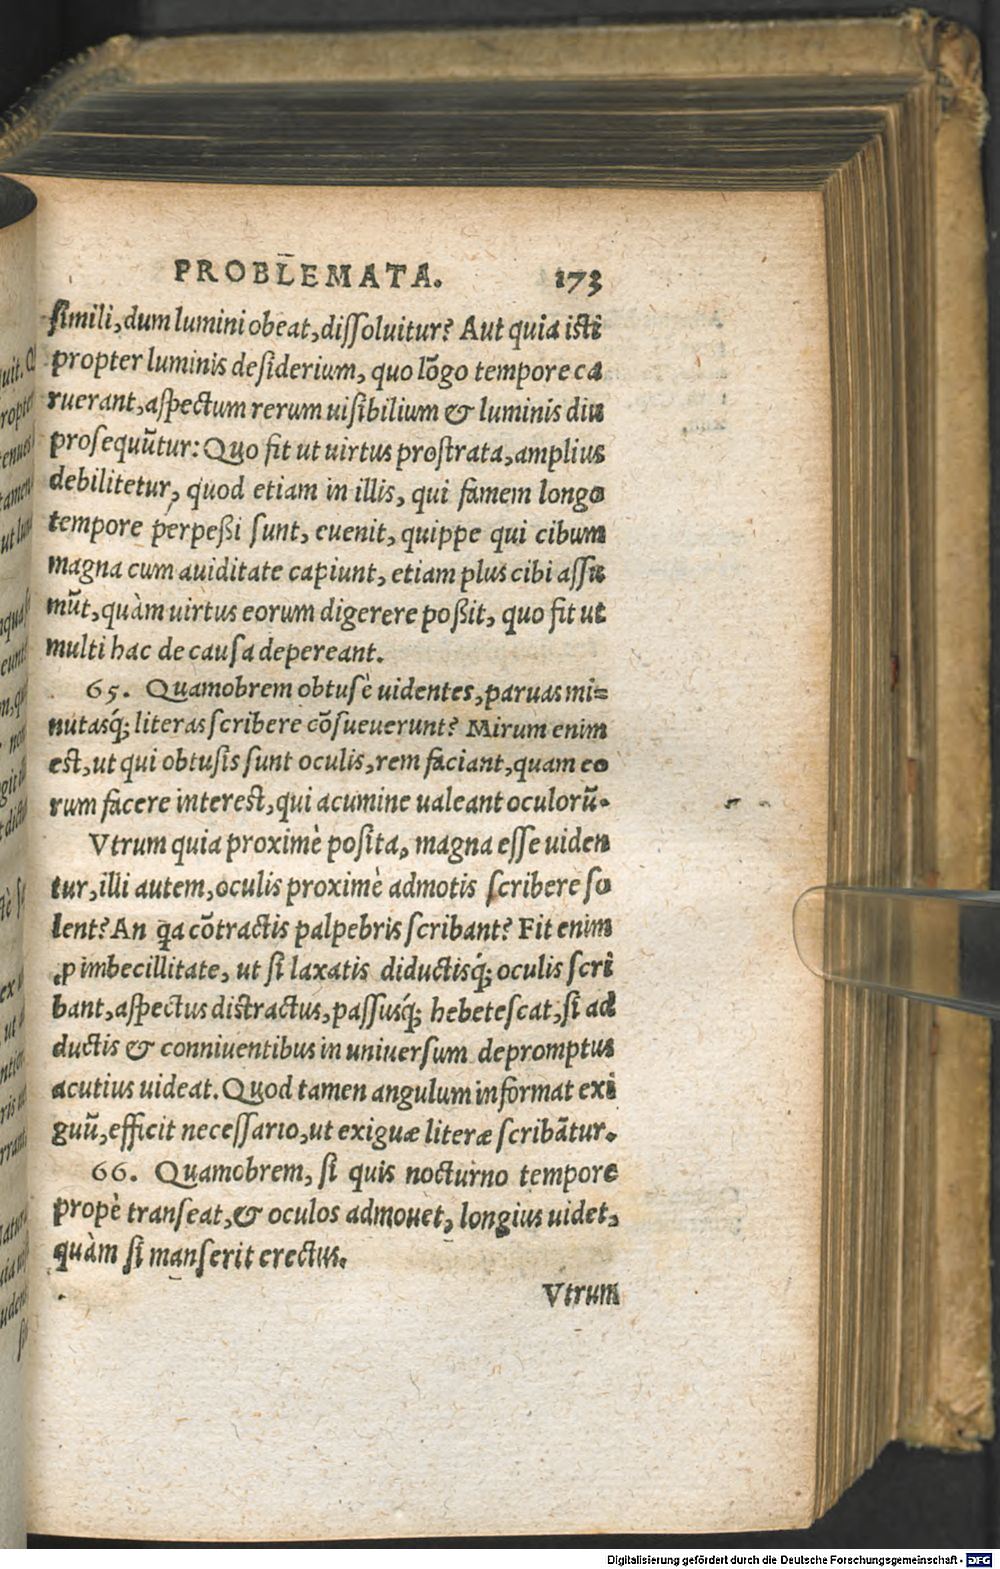 PROBLEMATA. 173
simili, dum lumini obeat, dissoluitur? Aut quia isti
propter luminis desiderium, quo lõgo tempore ca
ruerant, aspectum rerum uisibilium & luminis diu
prosequũtur: Quo fit ut uirtus prostrata, amplius
debilitetur, quod etiam in illis, qui famem longo
tempore perpeßi sunt, euenit, quippe qui cibum
magna cum auiditate capiunt, etiam plus cibi assu
mũt, quàm uirtus eorum digerere poßit, quo fit ut
multi hac de causa depereant.
65. Quamobrem obtusè uidentes, paruas mi=
nutasq́; literas scribere cõsueuerunt? Mirum enim
est, ut qui obtusis sunt oculis, rem faciant, quam eo
rum facere interest, qui acumine ualeant oculorũ.
Vtrum quia proximè posita, magna esse uiden
tur, illi autem, oculis proximè admotis scribere so
lent? An q̃a cõtractis palpebris scribant? Fit enim
ꝓ imbecillitate, ut si laxatis diductisq́; oculis scri
bant, aspectus distractus, passusq́; hebetescat, si ad
ductis & conniuentibus in uniuersum depromptus
acutius uideat. Quod tamen angulum informat exi
guũ, efficit necessario, ut exiguæ literæ scribãtur.
66. Quamobrem, si quis nocturno tempore
propè transeat, & oculos admouet, longius uidet,
quàm si manserit erectus.
Vtrum
Digitalisierung gefördert durch die Deutsche Forschungsgemeinschaft - DFG